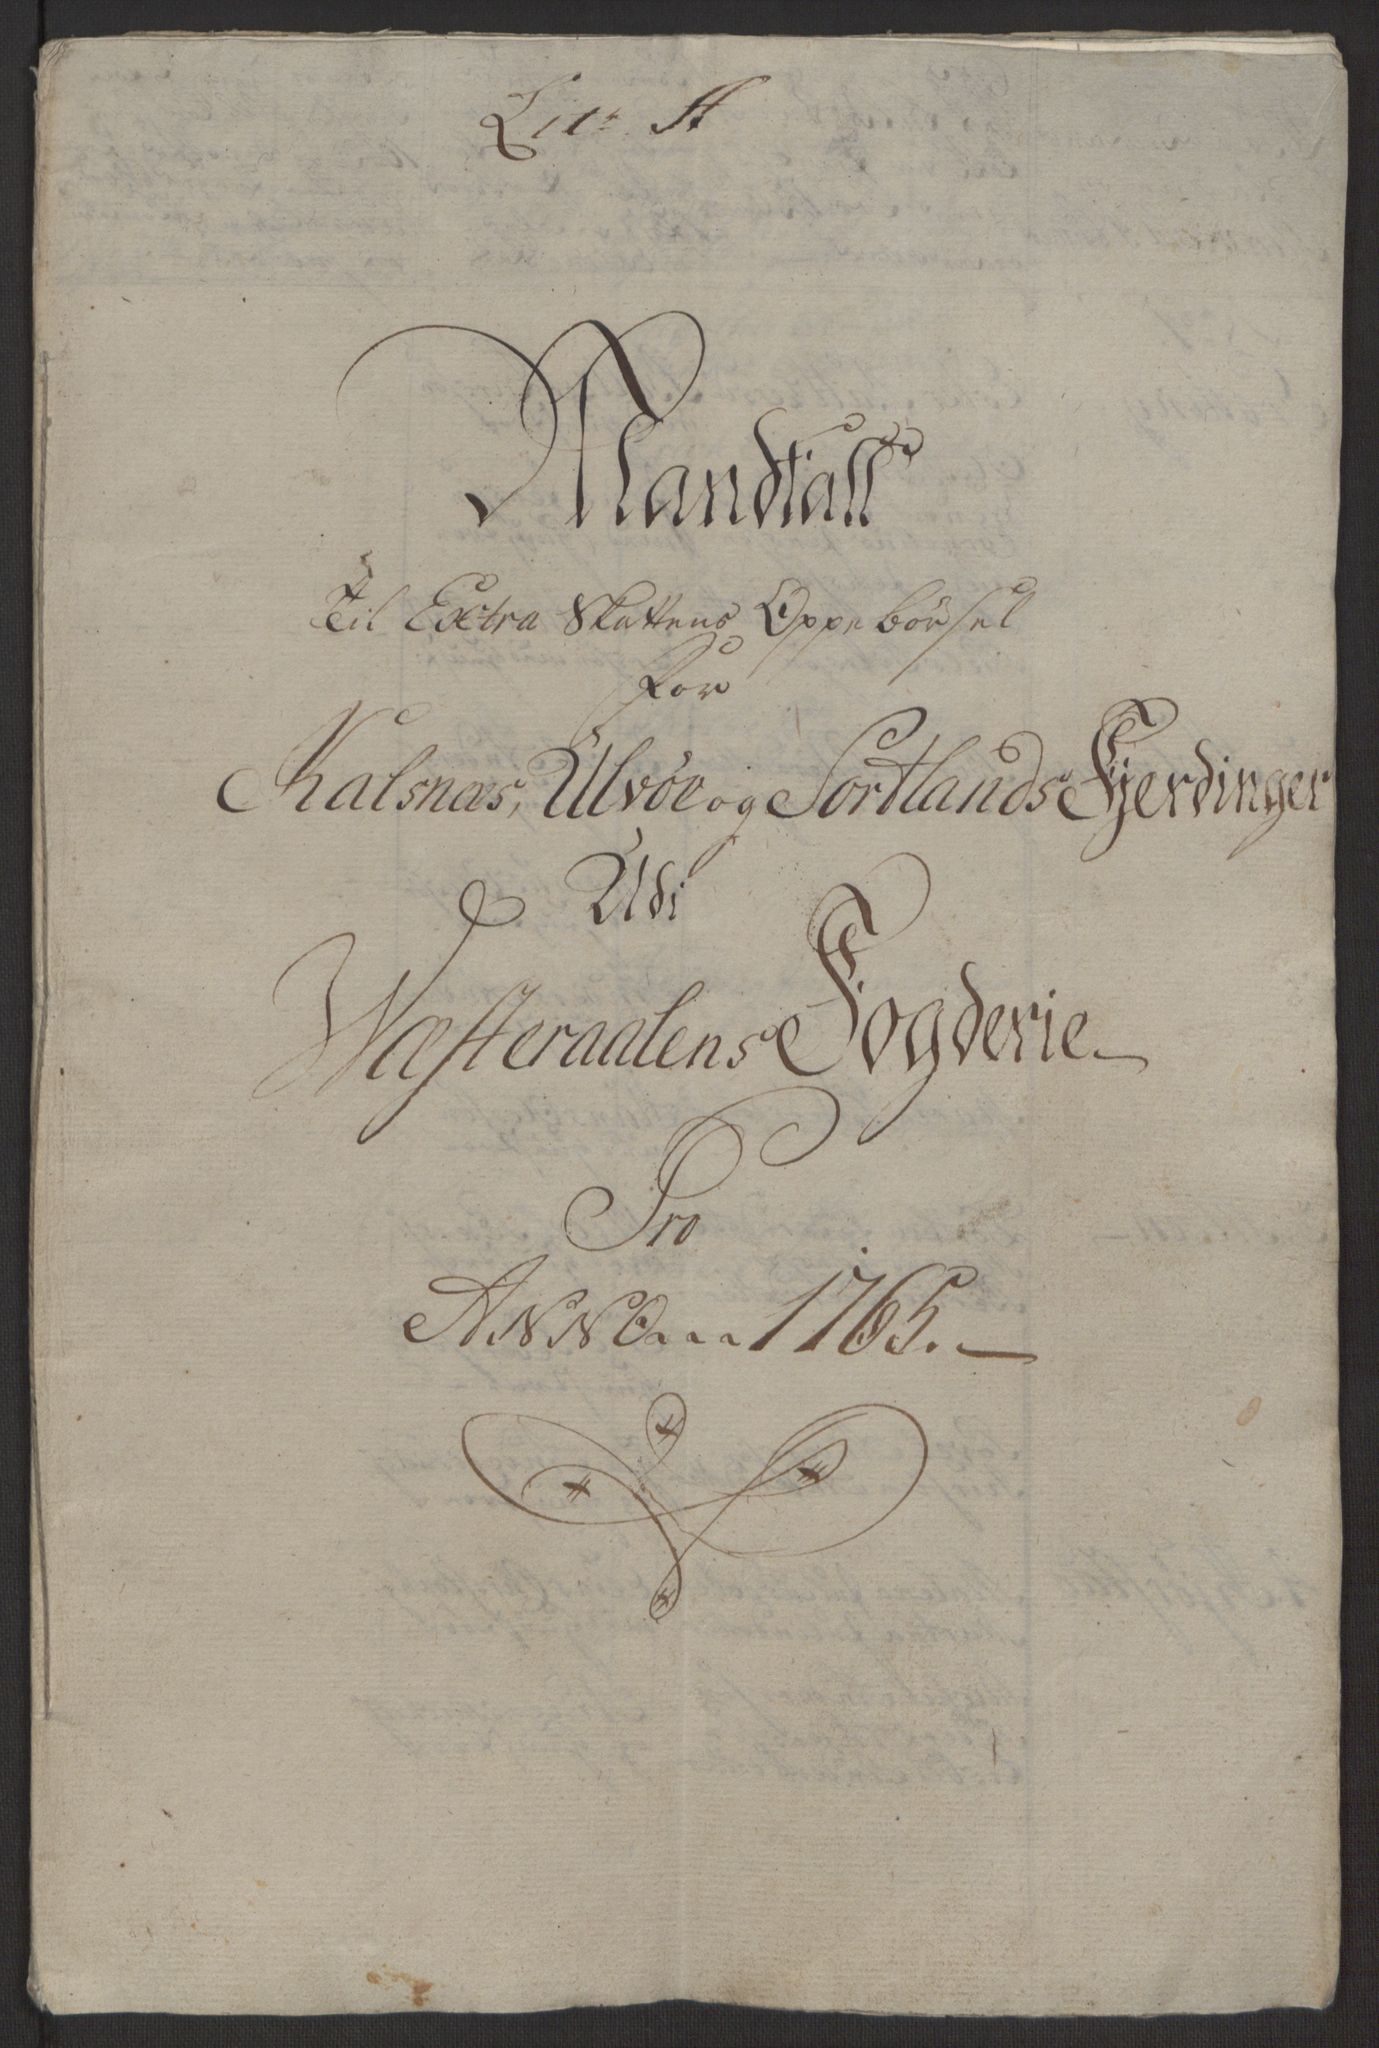 Litr. A
Mandtall
Til Extra Skattens Oppebörsel
For
Kalsnæs, Ulvöe og Sortlands Fjerdinger
Udi
Wæsteraalens Fogderie
Pro
ANNO 1765.